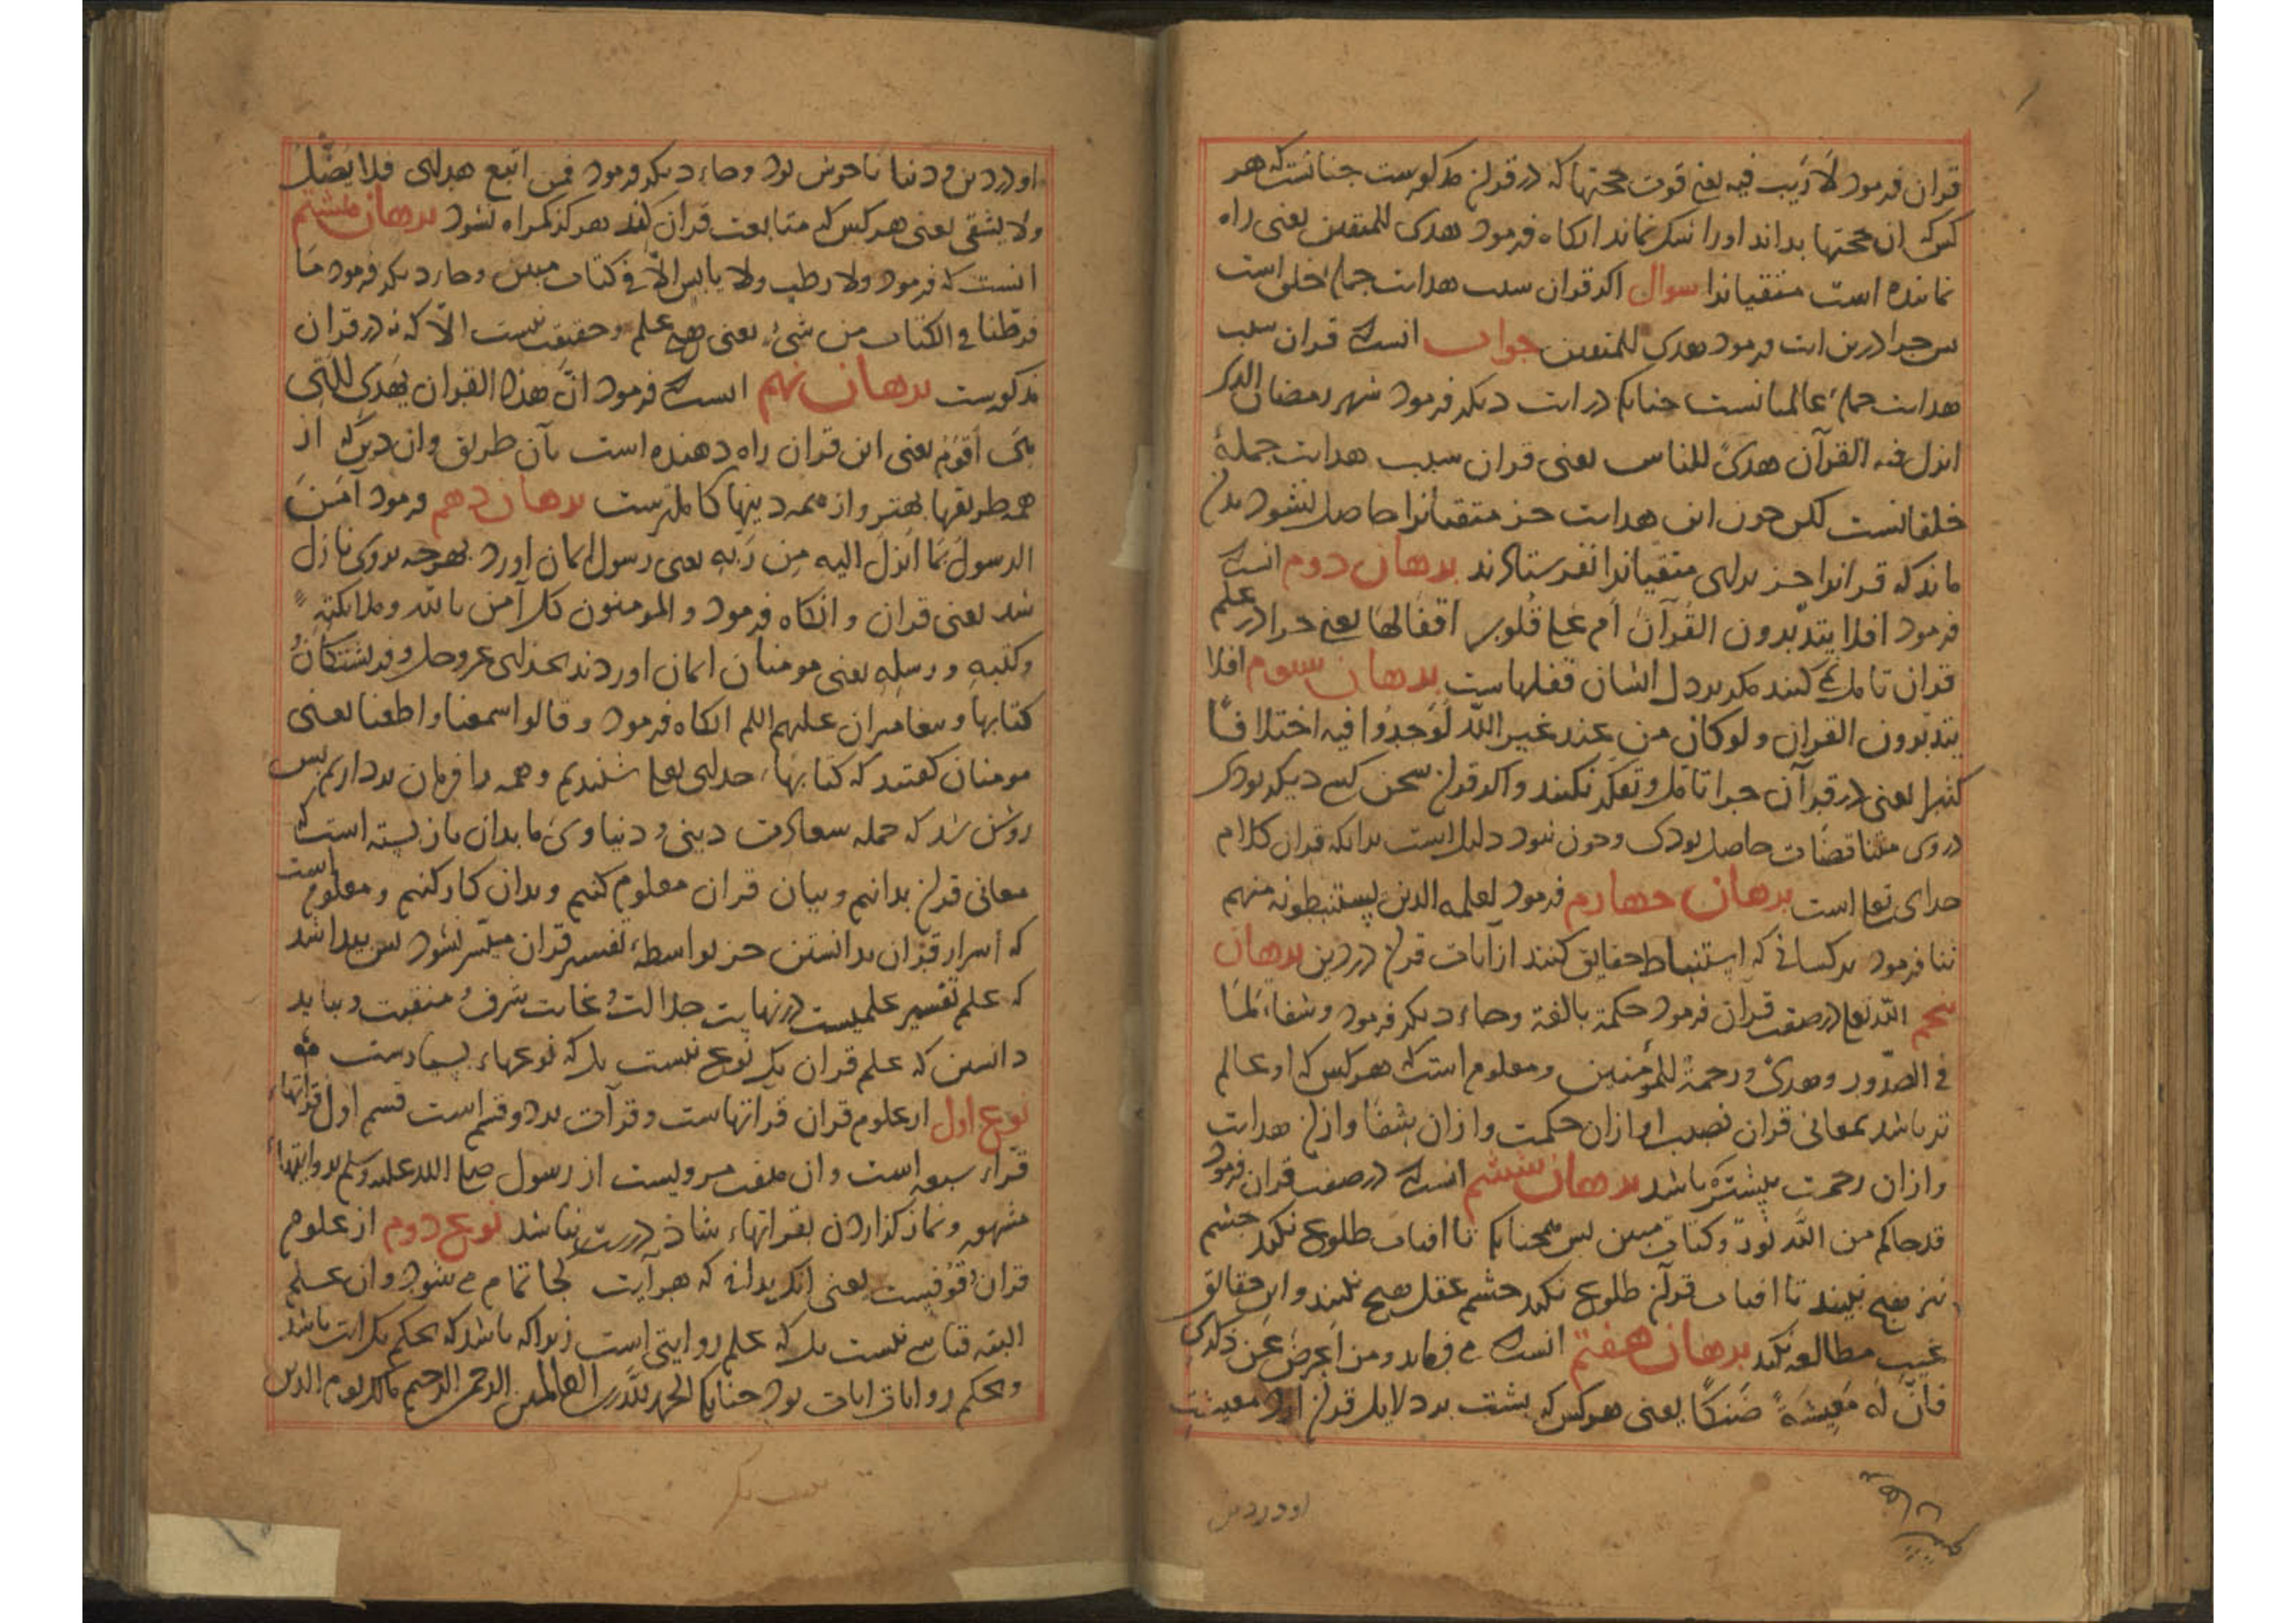 قران فرمود لَا رَیب فیه یعنی قوت حجتها که در قران مذکورست چنانست که هر
کس که ان حجتها بداند اورا شک نماند انکاه فرمود هدی للمتقین یعنی راه
نماینده است متقیانرا سوال اکر قران سبب هدایت جملهٔ خلق است
بس چرا درین ایت فرمود هدی للمتقین جواب انست که قران سبب
هدایت جملهٔ عالمیانست چنانکه در ایت دیکر فرمود شهر رمضان الذی
انزل فیه القرآن هدیً للناس یعنی قران سبب هدایت جملهٔ
خلقانست لکن چون این هدایت جز متقیانرا حاصل نشود بدان
ماند که قرانرا جز برای متقیانرا نفرستادند برهان دوم انست که
فرمود افلا یتدبّرون القُرآنَ اَم عَلی قُلوب اقفالها یعنی چرا در علم
قران تامل نمی کنند مکر بر دل ایشان قفلهاست برهان سوم افلا
یتدبّرون القران و لو کان من عند غیر اللّه لَوَجدُوا فیه اختلافًا
کثیرا یعنی در قرآن چرا تامل و تفکر نکنند و اکر قران سخن کسی دیکر بودی
در وی متناقضات حاصل بودی و چون نبود دلیل است بدانکه قران کلام
خدای تعالی است برهان چهارم فرمود لعلمه الذین یستنبطونه منهم
ثنا فرمود بر کسانی که استنباط حقایق کنند از آیات قران در دین برهان
پنجم اللّه تعالی در صفت قرآن فرمود حکمة بالغة و جاء دیکر فرمود و شفاء لمَا
فی الصّدور و هدیً و رحمةً للمؤمنین و معلوم است که هر کس که او عالم
تر باشد بمعانی قران نصیب او از ان حکمت و از ان شفا و از ان هدایت
و از ان رحمت بیشتر باشد برهان ششم انست که در صفت قران فرمود
قد جاکم من اللّه نورٌ و کتاب مبین بس همچنانکه تا افتاب طلوع نکند چشم
نیز هیچ نبیند تا افتاب قرآن طلوع نکند چشم عقل هیچ نبیند و این حقایق
غیب مطالعه نکند برهان هفتم انست که می فرماید و من اَعرضَ عَن ذکری
فاِنَّ لَه مَعِیشَةً ضَنکًا یعنی هر کس که بشت بر دلایل قران ارد معیشت
او در دین
او در دین و دنیا ناخوش بود و جاء دیکر فرمود فمن اتبع هدای فلا یَضِلُّ
ولا یشقی یعنی هر کس که متابعت قران کند هرکز کمراه نشود برهان هشتم
انست که فرمود ولا رطب ولا یابس الّا فی کتاب مبین و جاء دیکر فرمود مَا
فرطنا فی الکتاب من شیءٍ یعنی هیچ علم و حقیقت نیست الّا که نه در قران
مذکورست برهان نهم انست که فرمود اِنَّ هذا القران یَهدِی للَّتِی
هِیَ اَقوَمُ یعنی این قران راه دهنده است بآن طریق و ان دین که از
همه طریقها بهتر و از همه دینها کاملترست برهان دهم فرمود آمَنَ
الرسولُ بمَا اُنزِلَ الیه مِن رَبّهِ یعنی رسول ایمان اورد بهرچه بروی نازل
شد یعنی قران و انکاه فرمود و المومنون کل آمن باللّه و ملایکته
و کتبهِ و رسلِهِ یعنی مومنان ایمان اوردند بخدای عزوجل و فرشتکان و
کتابها و پیغامبران علیهم السلم انکاه فرمود و قالوا سمعنا و اطعنا یعنی
مومنان کفتند که کتابهاء خدای تعالی شنیدیم و همه را فرمان برداریم بس
روشن شد که جمله سعادت دینی و دنیاوی ما بدان باز بسته است که
معانی قران بدانیم و بیان قران معلوم کنیم و بدان کار کنیم و معلوم است
که اسرار قرآن بدانستن جز بواسطهٔ تفسیر قران میسّر نشود بس پیدا شد
که علم تفسیر علمیست در نهایت جلالت و غایت شرف و منقبت و بباید
دانستن که علم قران یک نوع نیست بلکه نوعهاء بسیارست
نوع اول از علوم قران قراتهاست و قرآت بر دو قسم است قسم اول قراتهاء
قراء سبعه است و ان هفت مرویست از رسول صلی اللّه علیه وسلم بروایتهاء
مشهور و نماز کزاردن بقراتهاء شاذ درست نباشد نوع دوم از علوم
قران وقوفیست یعنی انکه بدانی که هر آیت کجا تمام می شود و ان علم
البته قیاسی نیست بلکه علم روایتی است زیراکه باشد که بحکم یک ایت باشد
و بحکم روایات ایات بود چنانکه الحمد للّه رب العالمین الرحمن الرحیم مالک یوم الدین